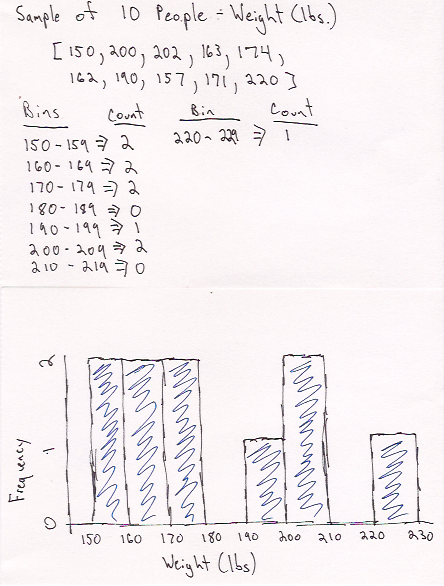 Sample of 10 People - Weight (lbs.)
[150, 200, 202, 163, 174,
162, 190, 157, 171, 220]
Bins Count Bin Count
150-159 ⇒ 2 220-229 ⇒ 1
160-169 ⇒ 2
170-179 ⇒ 2
180-189 ⇒ 0
190-199 ⇒ 1
200-209 ⇒ 2
210-219 ⇒ 0
2
1
0
Frequency
150 160 170 180 190 200 210 220 230
Weight (lbs)